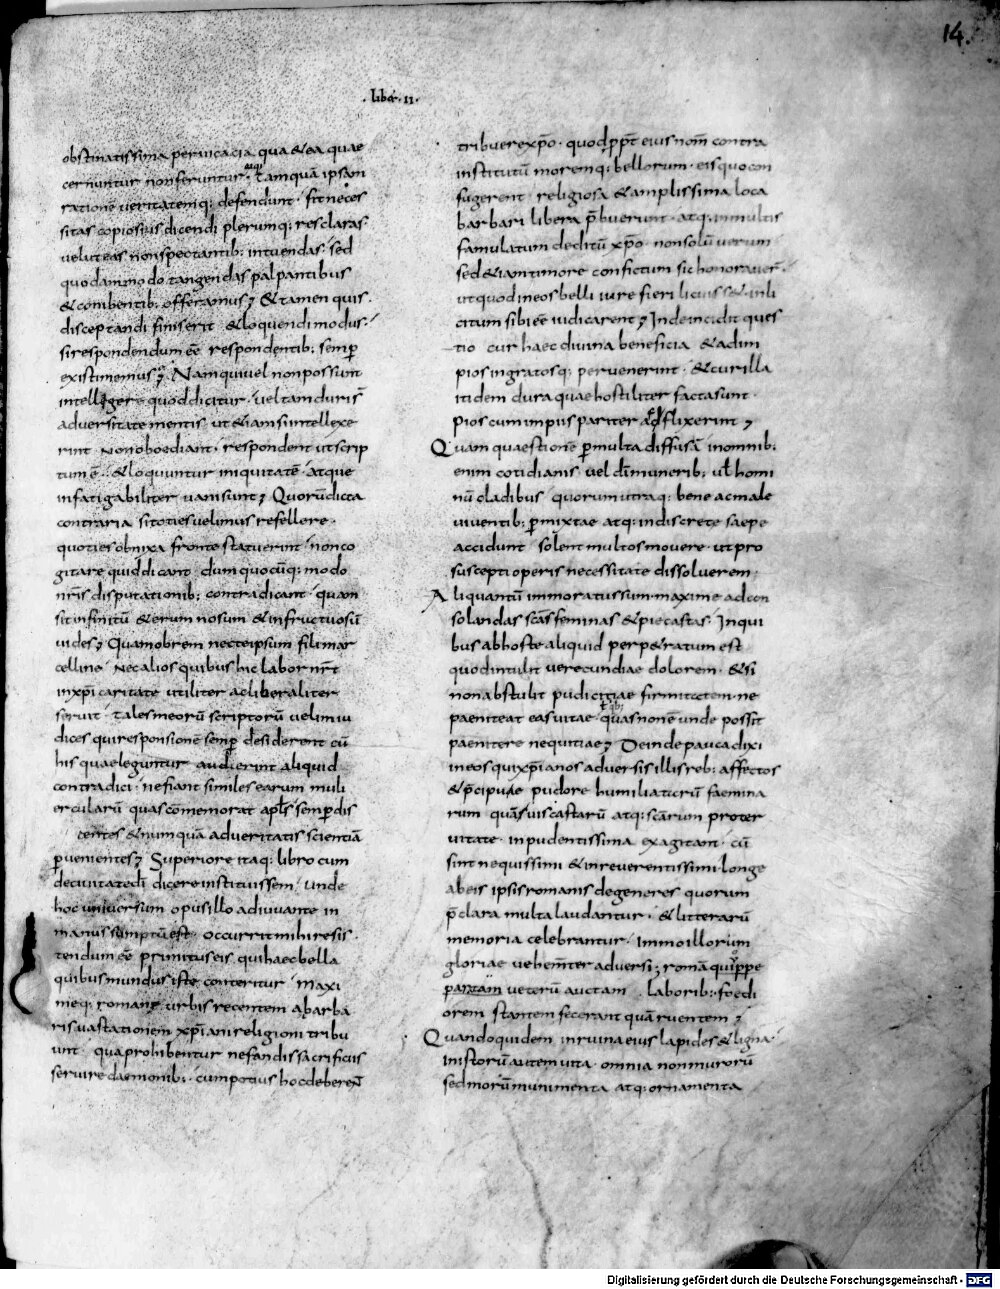 14.
· liber · II ·
obstinatissima pervicacia qua & ea quae
cernuntur non feruntur · atq; tamquā ipsam
ratione veritatemq; defendunt · fit neces
sitas copiosius dicendi plerumq; res claras ·
velut eas non spectantib; intuendas · sed
quodammodo tangendas palpantibus
& conibentib; offeramus; & tamen quis
disceptandi finis erit & loquendi modus ·
si respondendum eē respondentib; semp
existimemus; Nam qui vel non possunt
intellegere quod dicitur · vel tam duris
adversitate mentis · ut & iam si intellexe
rint non oboediant · respondent ut scrip
tum ē · & loquuntur iniquitatē · atque
infatigabiliter vani sunt; Quorū dicta
contraria si toties velimus refellere ·
quoties obnixa fronte statuerint non co
gitare quid dicant · dum quocūq; modo
nr̄is disputationib; contradicant · quam
sit infinitū & erumnosum & infructuosū
vides; Quamobrem nec te ipsum fili mar
celline · nec alios quibus hic labor nr̄
in xp̄i caritate utiliter ac liberaliter
servit · tales meorū scriptorū velim iu
dices qui responsionē semp desiderent cū
his quae leguntur audierint aliquid
contradici · ne fiant similes earum muli
ercularū quas cōmemorat apl̄s semp dis
centes & numquā ad veritatis scientiā
pervenientes; Superiore itaq; libro cum
de civitate dī dicere instituissem · unde
hoc universum opus illo adiuvante in
manus sumptū est · occurrit mihi resis
tendum eē primitus eis qui haec bella
quibus mundus iste conteritur · maxi
meq; romane urbis recentem a barba
ris vastationem xp̄iani religioni tribu
unt · qua prohibentur nefandis sacrificiis
servire daemonib; · cum potius hoc deberent
tribuere xp̄o · quod ppt̄ eius nom̄ contra
institutū moremq; bellorum · eis quo con
fugerent · religiosa & amplissima loca
barbari libera p̄buerunt · atq; in multis
famulatum deditū xp̄o · non solū verum
sed & iam timore confictum sic honoraver̄ ·
ut quod in eos belli iure fieri licuisset · inli
citum sibi eē iudicarent; Inde incidit ques
tio cur haec divina beneficia & ad im
pios ingratosq; pervenerint · & cur illa
itidem dura quae hostiliter facta sunt ·
pios cum impiis pariter adflixerint;
Quam quaestionē p multa diffusā in omnib;
enim cotidianis vel dī muneribus; vel homi
nū cladibus quorum utraq; bene ac male
viventib; pmixtae atq; indiscrete saepe
accidunt solent multos movere · ut pro
suscepti operis necessitate dissolverem ·
Aliquantū immoratus sum · maxime ad con
solandas sc̄as feminas & pie castas · In qui
bus ab hoste aliquid perp&ratum est
quod intulit verecundiae dolorem · & si
non abstulit pudicitiae firmitatem · ne
paeniteat eas vitae · quas non ē unde possit
paenitere nequitiae; Deinde pauca dixi
in eos qui xp̄ianos adversis illis reb; affectos
& p̄cipuae pudore humiliatarū faemina
rum quāvis castarū atq; sc̄arum proter
vitate inpudentissima exagitant · cū
sint nequissimi & inreverentissimi · longe
ab eis ipsis romanis degeneres quorum
p̄clara multa laudantur · & litterarū
memoria celebrantur · Immo illorum
gloriae vehem̄ter adversi; romā quippe
partam veterū auctam · laborib; · foedi
orem stantem fecerant quā ruentem;
Quando quidem in ruina eius lapides & ligna ·
in istorū autem vita · omnia non murorū
sed morū munimenta atq; ornamenta
Digitalisierung gefördert durch die Deutsche Forschungsgemeinschaft - DFG